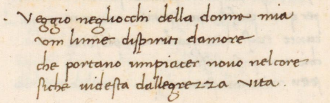 Veggio negliocchi della donna mia
vm lume dispiriti damore
che portano unpiacer novo nelcore
siche videsta dallegrezza vita.